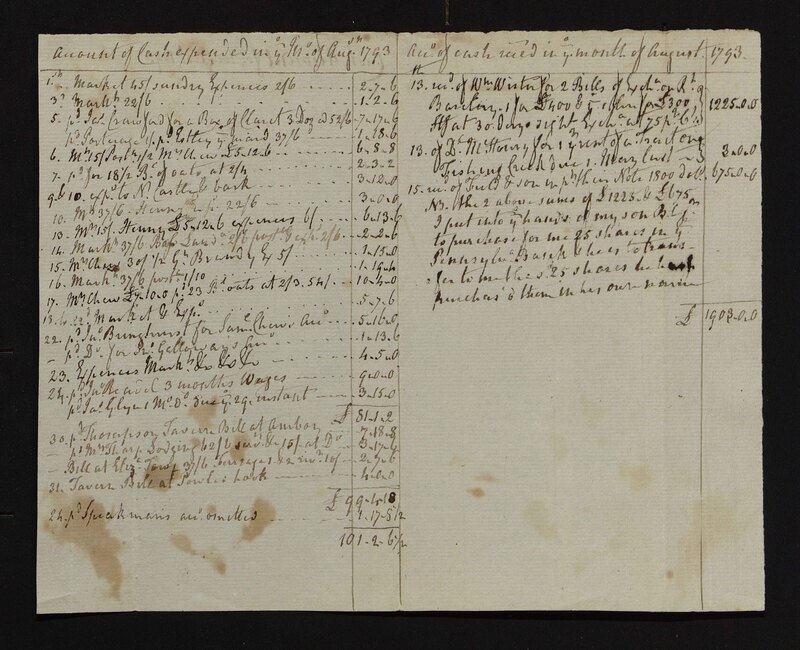 Account of Cash expended in yᵉ Mo. of Augᵗ 1793
1st Market 45/ sundry Expences 2/6 2-7-6
3. Markt 22/6 1-2-6
5. pd Jas. Crawford for a Box of Claret 3 Doz at 52/6 7-17-6
pd Porterage 1/ pd Lottery 37/6 1-18-6
6. Mr 15/ Mrs Chew £5-12-6 6-8-8
7. pd for 18½ Bs of oats at 2/4 2-3-2
9 & 10. exps to N Castle & back 3-12-0
10. 37/6 Henry 22/6 3-0-0
13. Mr 15/ Henry £5-12-6 expences 6/ 6-13-6
14. Markt 37/6 2/6 post & exps 2/6 2-2-6
15. Mrs Chew 30/ ½ Gn Brandy Ex 5/ 1-15-0
16. Markt 37/6 post 1/10 1-19-4
17. Mrs Chew £7-10-0 pd 23 Bs oats at 2/3.54/ 10-4-0
22. Market & Exps 5-7-6
22. pd Jno Bringhurst for Saml Chew's Acct 5-16-0
- pd Do for Galloway's 1-13-6
23. Expences Markt &c &c &c 4-5-0
24. pd Jno 3 months Wages 9-0-0
pd Jas Glynn 1 Mo Do due ye 29 instant 3-15-0
£ 81-1-2
30. pd Thompson Tavern Bill at Amboy 7-18-8
- pd Mrs Tharp Lodging 62/6 15/ at Do 3-17-6
- Bill at Eliz. Town 37/6 10/ 2-7-6
31. Tavern Bill at Powles hook 4-0-0
£ 99-4-10
24. pd Speakman's acct omitted 1-17-8½
101-2-6½
Acct of cash recd in ye month of August 1793.
13. recd of Wm Wister for 2 Bills of Exche on Rt
Barclay 1 for £400 & other for £300
Stl at 30 days sight Exche at 75 pr Ct 1225-0-0
13. of Dr McHenry for 1 yr rent of a Tract on
Fishing Creek due 1. May last 3-0-0
15. recd of Field & son in pt their Note 1800 doll. 675-0-0
NB. the 2 above sums of £1225 & £675
I put into ye hands of my son B. C. Jr
to purchase for me 25 shares in ye
Pensylva Bank & he is to trans-
fer to me the sd 25 shares he
purchas'd them in his own name
£ 1903-0-0